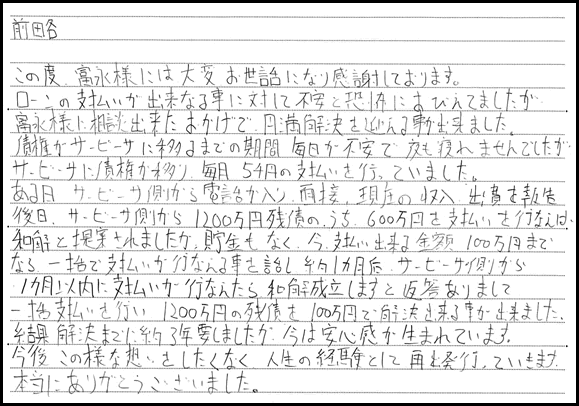 前田各
この度、富永様には大変お世話になり感謝しております。
ローンの支払いが出来なる事に対して不安と恐怖におびえてましたが
富永様に相談出来たおかげで、円満解決を迎える事が出来ました。
債権がサービサーに移るまでの期間、毎日が不安で夜も寝れませんでしたが
サービサーに債権が移り、毎月5万円の支払いを行っていました。
ある日サービサー側から電話が入り、面接、現在の収入、出費を報告
後日、サービサー側から1200万円残債のうち、600万円を支払いを行なえば、
和解と提案されましたが、貯金もなく、今、支払い出来る金額100万円まで
なら、一括で支払いが行なえる事を話し約1カ月后、サービサー側から
1カ月以内に支払いが行なえたら和解成立しますと返答ありまして
一括支払いを行い1200万円の残債を100万円で解決出来る事が出来ました。
結果、解決までに約3年要しましたが、今は安心感が生まれています。
今後、この様な想いをしたくなく、人生の経験として再出発行っていきます。
本当にありがとうございました。